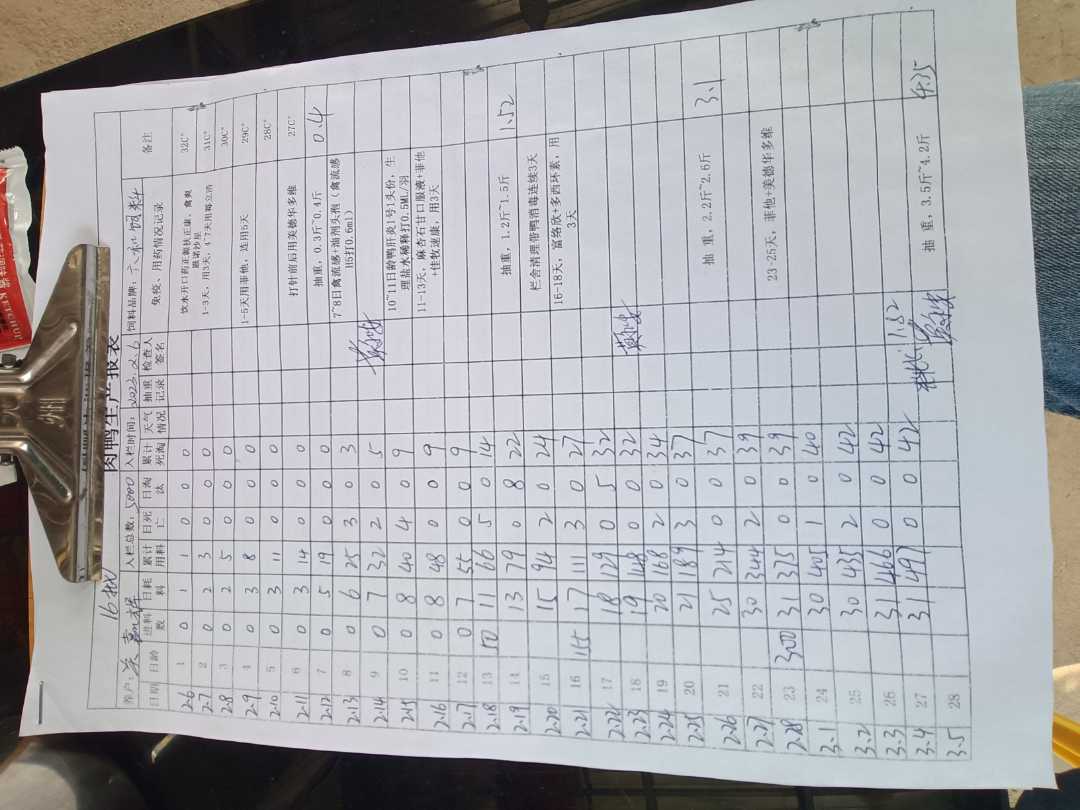 16批
肉鸭生产报表
养户： 入栏总数：5000 入栏时间：2023.2.6 饲料品牌：六和饲料
日期 日龄 进料数 日耗料 累计用料 日死亡 日淘汰 累计死淘 天气情况 抽重记录 检查人签名 免疫、用药情况记录 备注
2.6 1 0 1 1 0 0 0 饮水开口药 32C°
2.7 2 0 2 3 0 0 0 1-3天，用3天，4-7天用霉立消 31C°
2.8 3 0 2 5 0 0 0 30C°
2.9 4 0 3 8 0 0 0 1-5天用菲他，连用5天 29C°
2.10 5 0 3 11 0 0 0 28C°
2.11 6 0 3 14 0 0 0 打针前后用美德华多维 27C°
2.12 7 0 5 19 0 0 0 抽重，0.3斤~0.4斤 0.4
2.13 8 0 6 25 3 0 3 7~8日禽流感+油剂头孢（禽流感H5打0.6ml）
2.14 9 0 7 32 2 0 5
2.15 10 0 8 40 4 0 9 10~11日龄鸭肝炎1号1头份，生理盐水稀释打0.5ML/羽
2.16 11 0 8 48 0 0 9 11-13天，麻杏石甘口服液+菲他+佳牧速康，用3天
2.17 12 0 7 55 0 0 9
2.18 13 50 11 66 5 0 14
2.19 14 13 79 0 8 22 抽重，1.2斤~1.5斤 1.52
2.20 15 15 94 2 0 24 栏舍清理带鸭消毒连续3天
2.21 16 115 17 111 3 0 27 16-18天，富络欣+多西环素，用3天
2.22 17 18 129 0 5 32
2.23 18 19 148 0 0 32
2.24 19 20 168 2 0 34
2.25 20 21 189 3 0 37
2.26 21 25 214 0 0 37 抽 重，2.2斤~2.6斤 3.1
2.27 22 30 344 2 0 39
2.28 23 300 31 375 0 0 39 23-25天，菲他+美德华多维
3.1 24 30 405 1 0 40
3.2 25 30 435 2 0 42
3.3 26 31 466 0 0 42
3.4 27 31 497 0 0 42 11.82
3.5 28 抽 重，3.5斤~4.2斤 4.35
KETCHUP